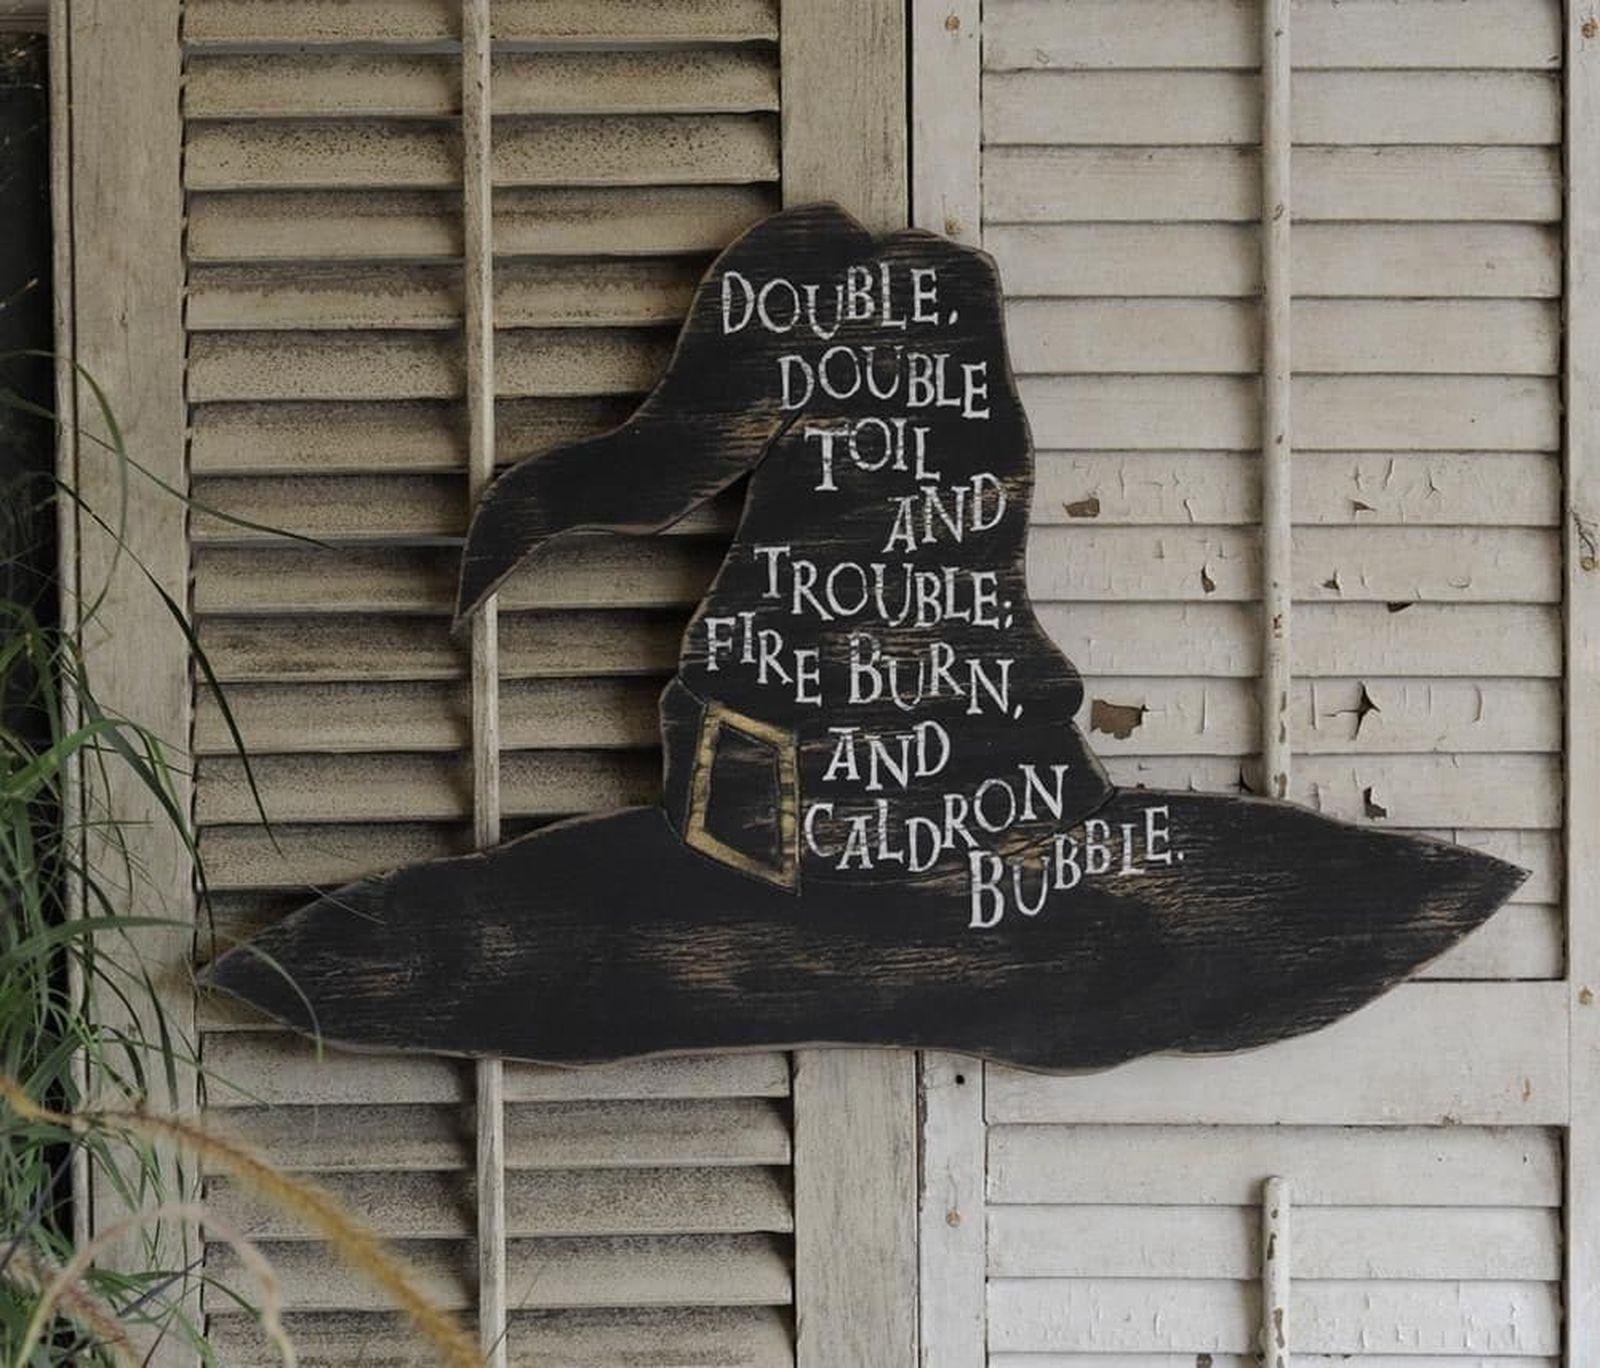 DOUBLE,
DOUBLE
TOIL
AND
TROUBLE;
FIRE BURN,
AND
CALDRON
BUBBLE.